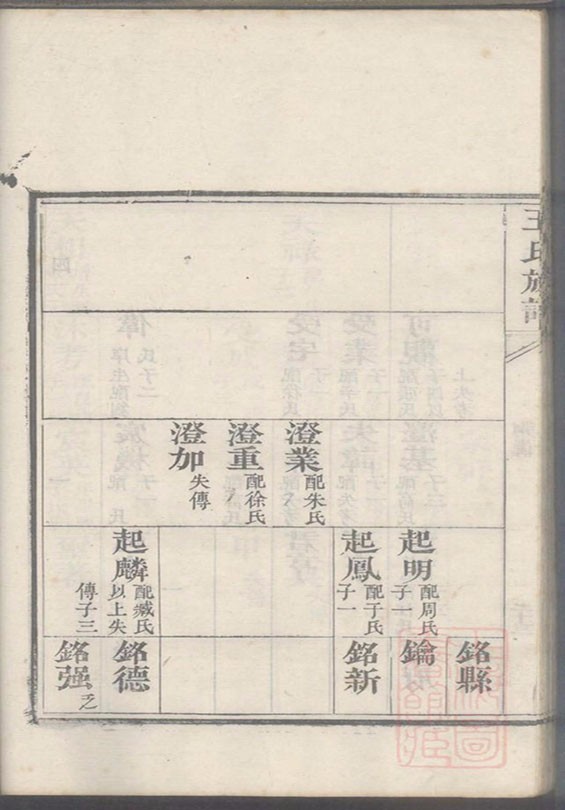 王氏族譜
澄業 配朱氏
澄重 配徐氏
澄加 失傳
起明 配周氏 子一
起鳳 配于氏 子一
起麟 配臧氏 以上失
傳 子三
銘縣
鑰
銘新
銘德
銘强